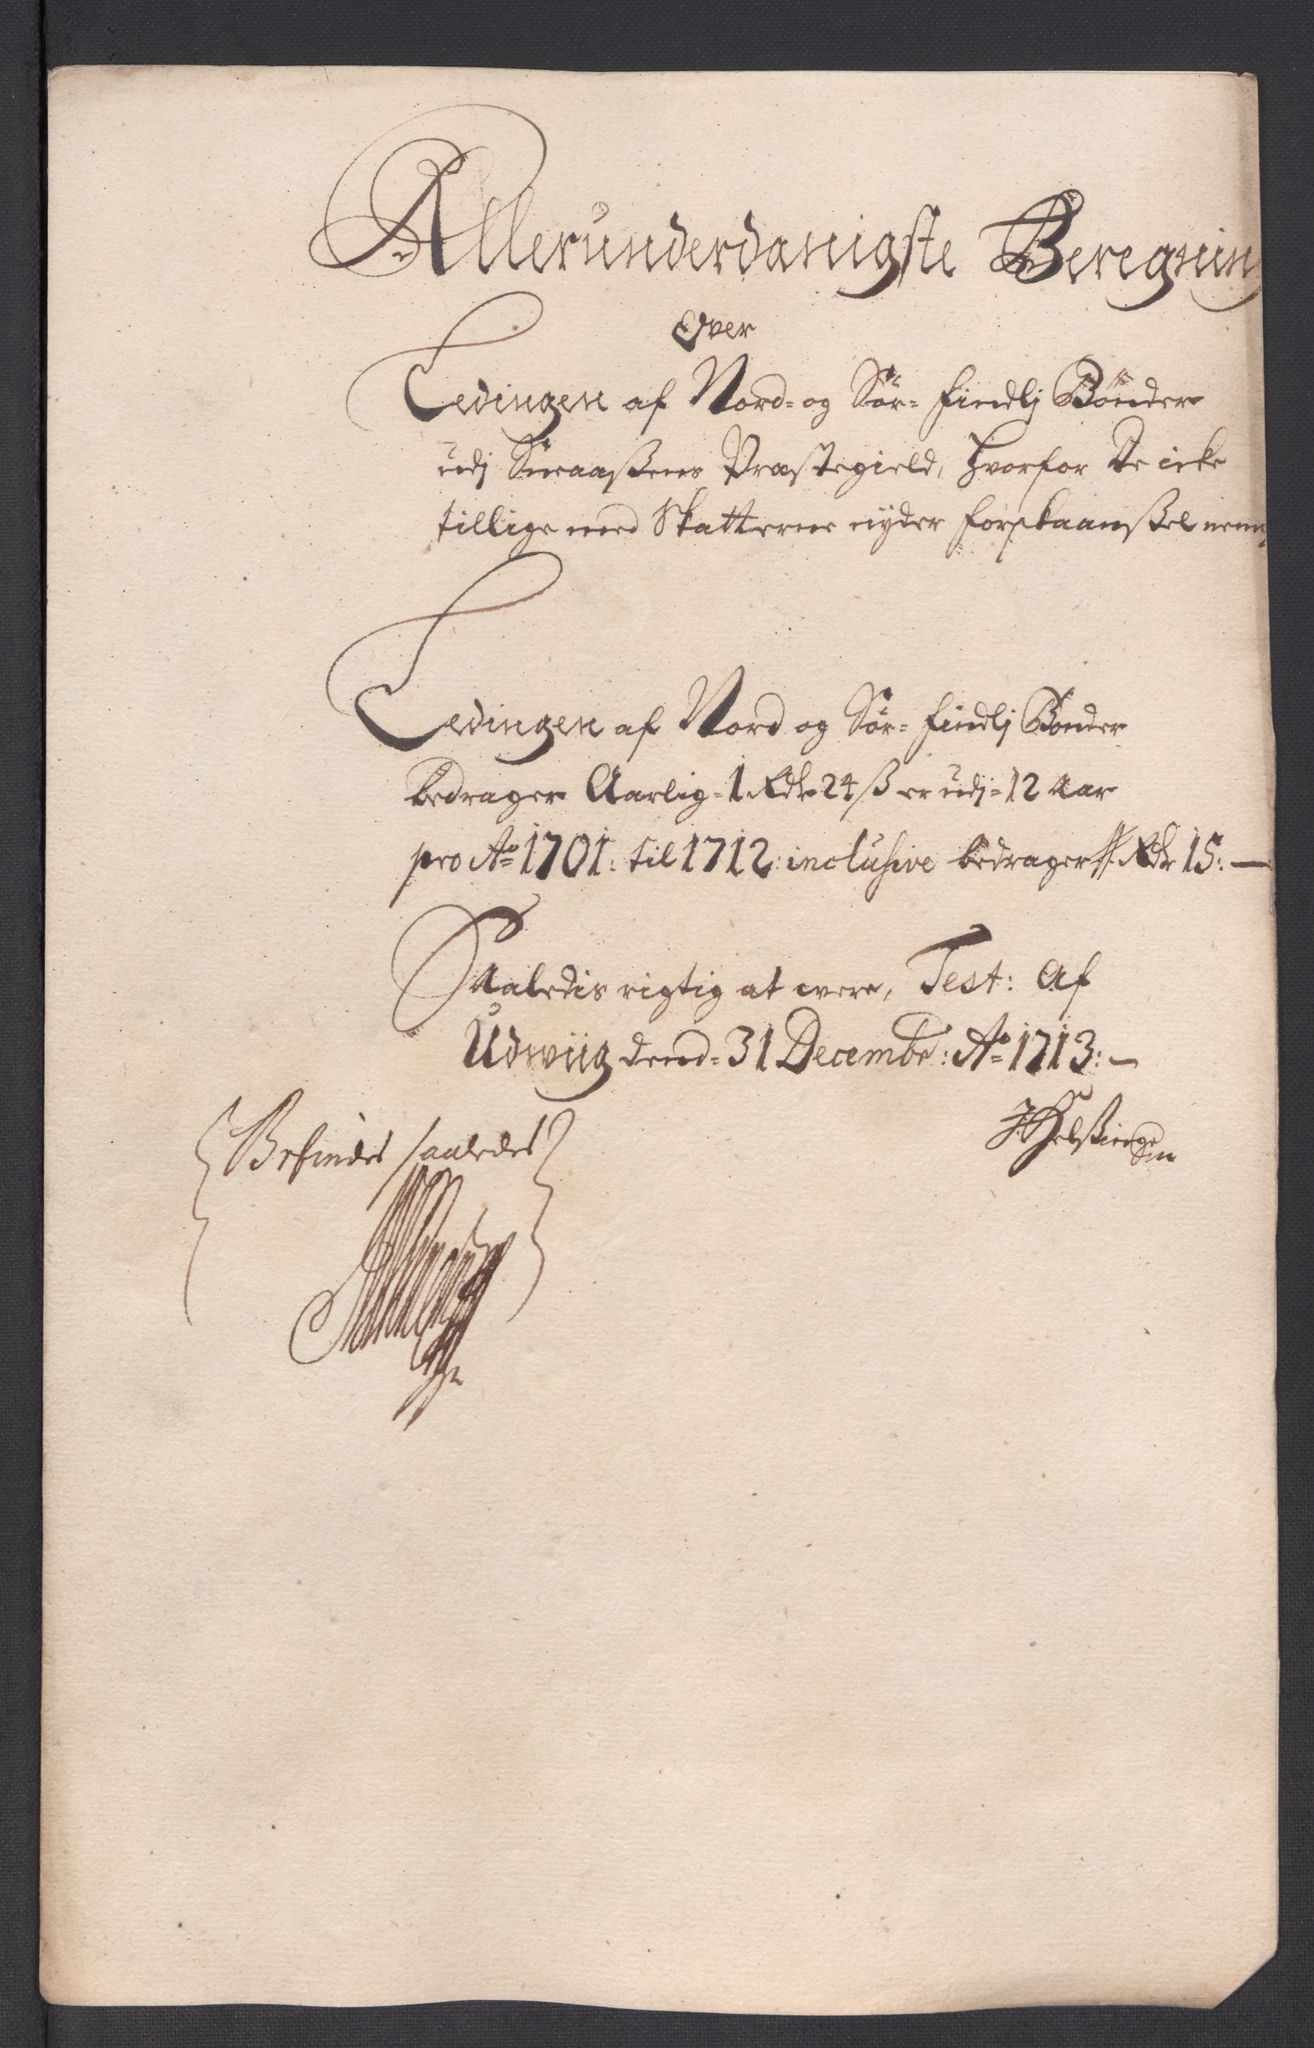 Allerunderdanigste Beregning
Over
Ledingen af Nord- og Sør- Findlj Bønder
udj Sneaaßens Præstegield, hvorfor De icke
tillige med Skatterne nyder forskaanßel nemlig
Ledingen af Nord og Sør- Findlj Bønder
bedrager Aarlig- 1 Rdr 24 ß er udj- 12 Aar
pro Ao 1701: til 1712: inclusive bedrager Rdr 15: —
Saaledis rigtig at were, Test: Af
Udwiig dend- 31 Decembr: Ao 1713: —
Befindes saaledes